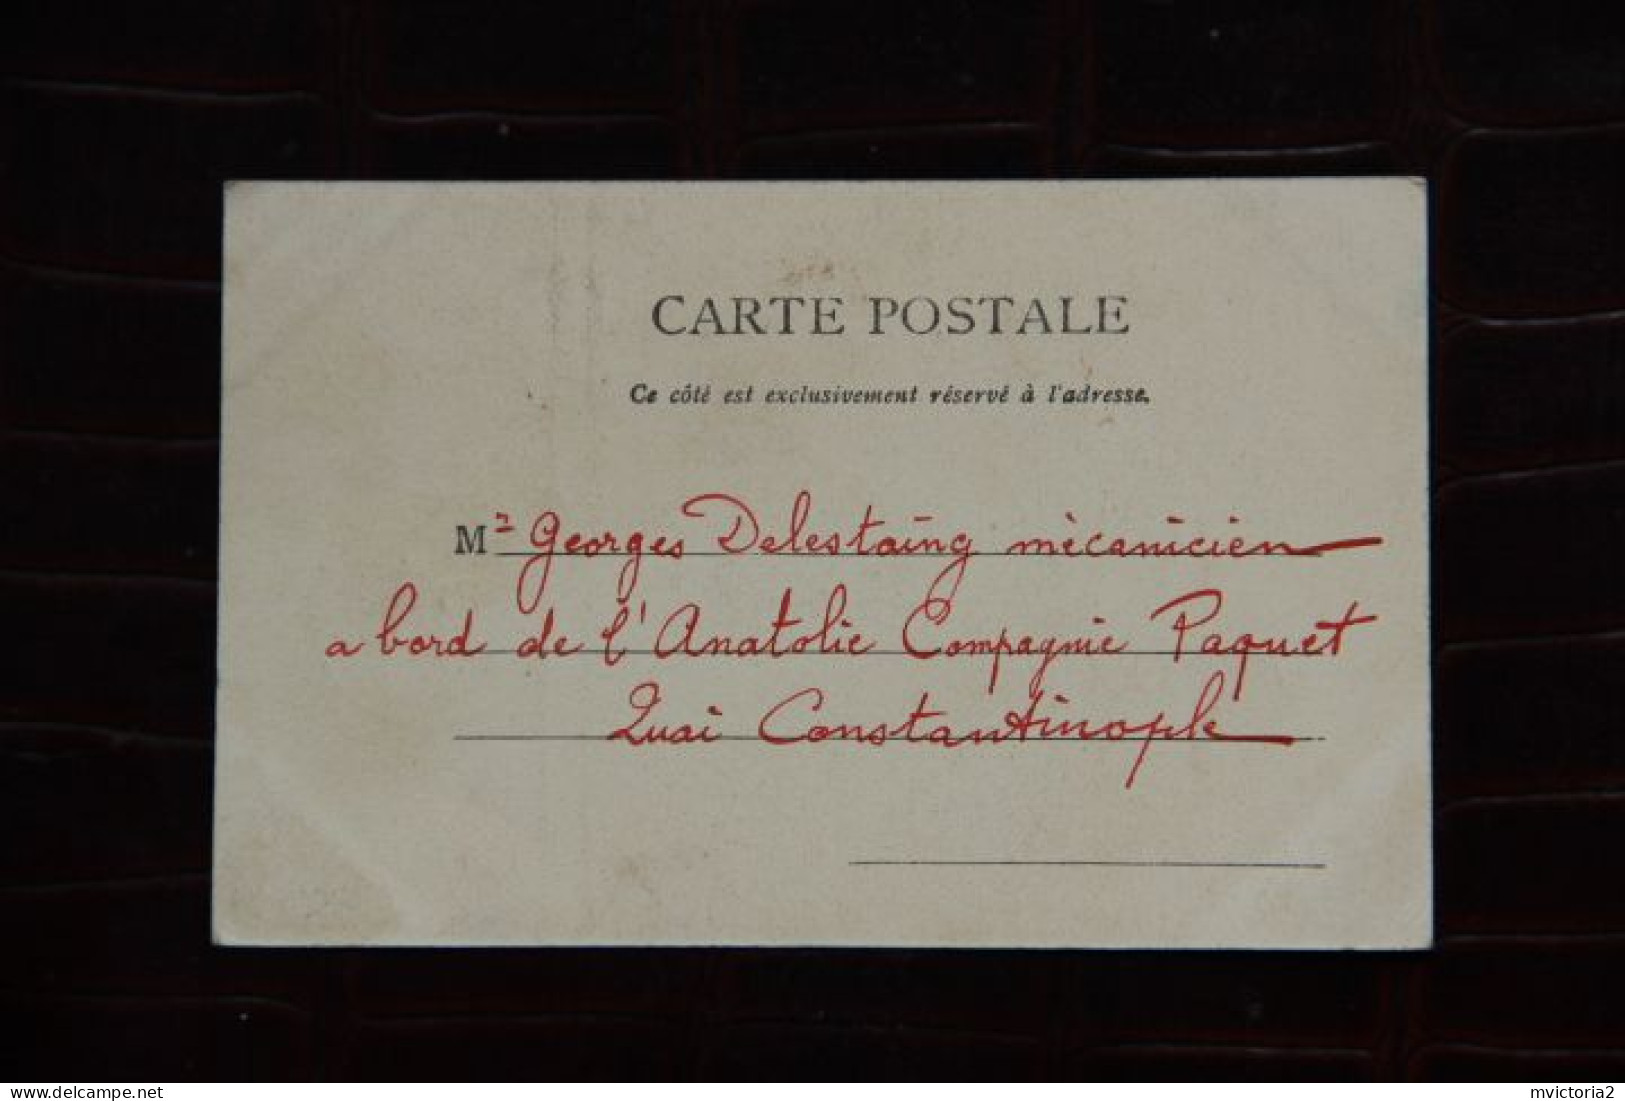 CARTE POSTALE
Ce côté est exclusivement réservé à l'adresse.
Mr Georges Delestaing mècanicien
a bord de l'Anatolie Compagnie Paquet
Quai Constantinople
delcampe.net
mvictoria2